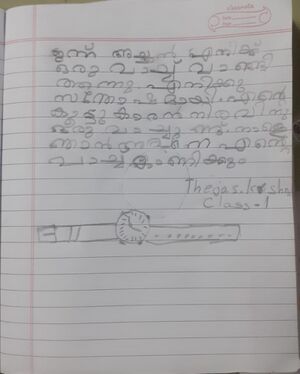 ഇന്ന് അച്ഛൻ എനിക്ക്
ഒരു വാച്ച് വാങ്ങി
തന്നു. എനിക്കു
സന്തോഷമായി. എന്റെ
കൂട്ടുകാരൻ നിരവിനു
ഒരു വാച്ചു ണ്ട്. നാളെ
ഞാൻ അവനെ എന്റെ
വാച്ച് കാണിക്കും
Thejas.krishna
Class-1